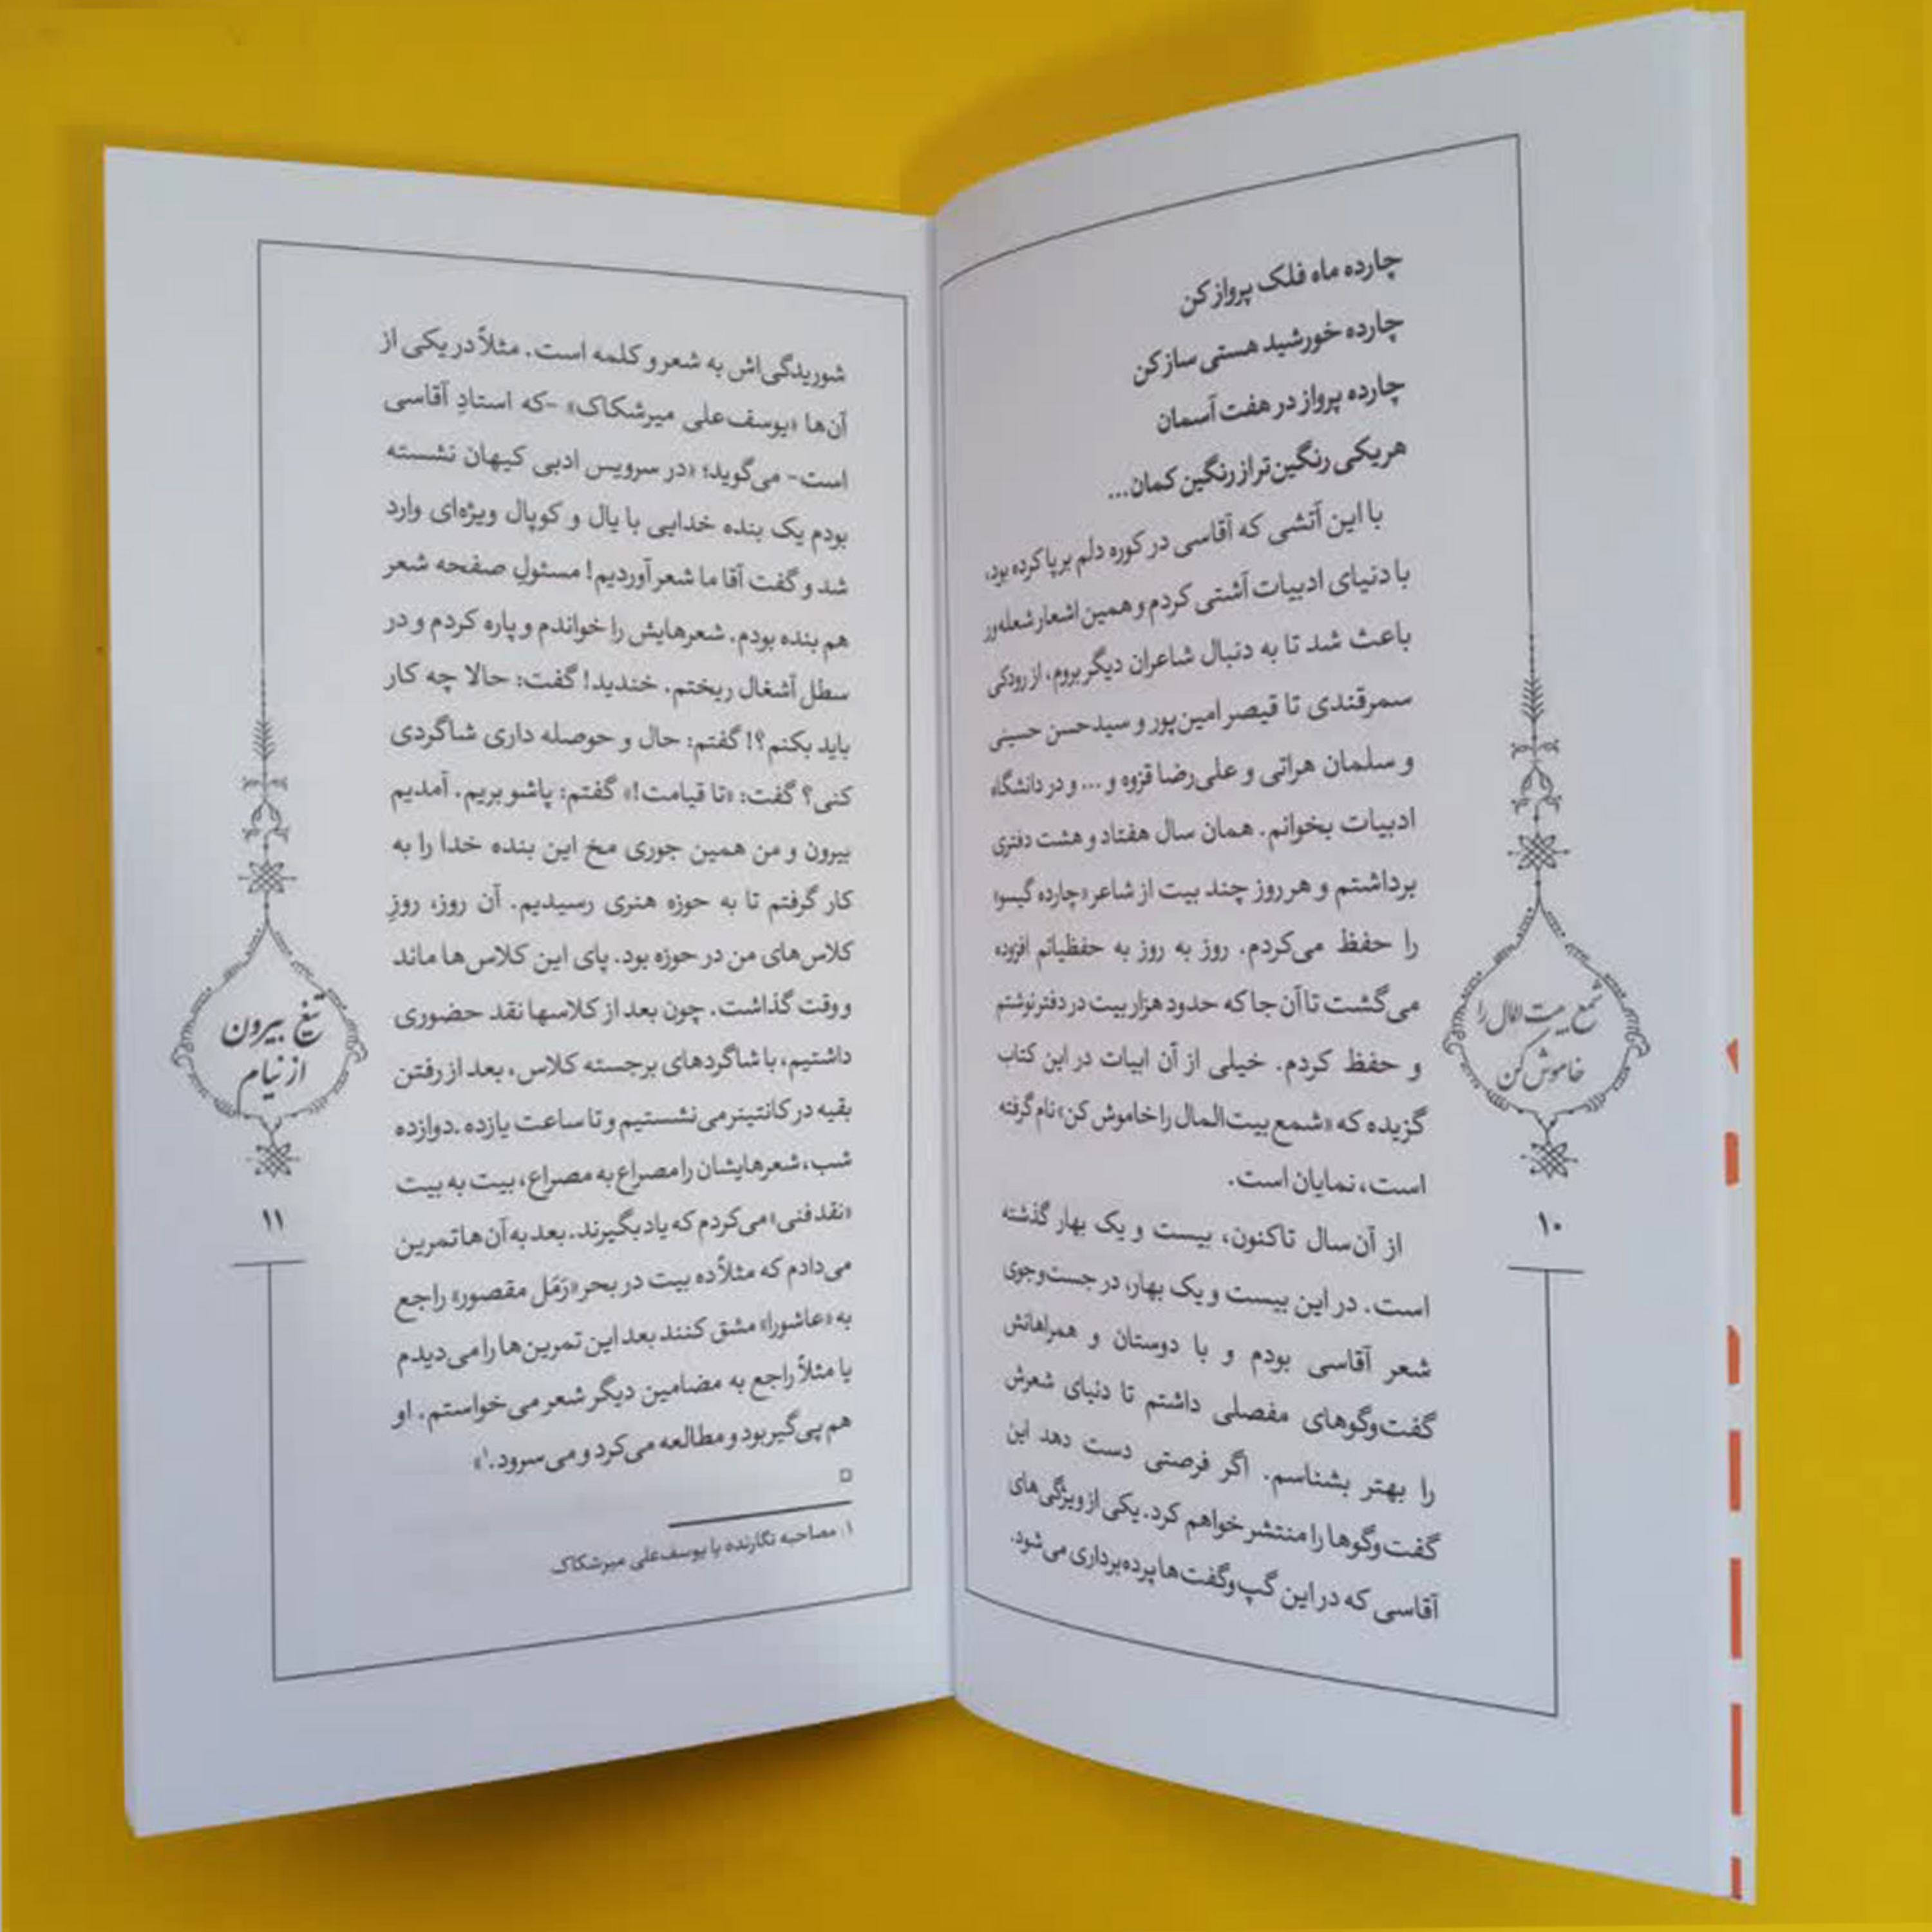 چارده ماه فلک پرواز کن
چارده خورشید هستی ساز کن
چارده پرواز در هفت آسمان
هر یکی رنگین‌تر از رنگین کمان...
با این آتشی که آقاسی در کوره دلم برپا کرده بود،
با دنیای ادبیات آشتی کردم و همین اشعار شعله‌ور
باعث شد تا به دنبال شاعران دیگر بروم، از رودکی
سمرقندی تا قیصر امین‌پور و سیدحسن حسینی
و سلمان هراتی و علی‌رضا قزوه و ... و در دانشگاه
ادبیات بخوانم. همان سال هفتاد و هشت دفتری
برداشتم و هر روز چند بیت از شاعر «چارده گیسو»
را حفظ می‌کردم. روز به روز به حفظیاتم افزوده
می‌گشت تا آن جا که حدود هزار بیت در دفتر نوشتم
و حفظ کردم. خیلی از آن ابیات در این کتاب
گزیده که «شمع بیت‌المال را خاموش کن» نام گرفته
است، نمایان است.
از آن‌سال تاکنون، بیست و یک بهار گذشته
است. در این بیست و یک بهار، در جست‌وجوی
شعر آقاسی بودم و با دوستان و همراهانش
گفت‌وگوهای مفصلی داشتم تا دنیای شعرش
را بهتر بشناسم. اگر فرصتی دست دهد این
گفت‌وگوها را منتشر خواهم کرد. یکی از ویژگی‌های
آقاسی که در این گپ‌وگفت‌ها پرده‌برداری می‌شود،
شمع بیت المال را
خاموش کن
۱۰
شوریدگی‌اش به شعر و کلمه است. مثلاً در یکی از
آن‌ها «یوسف‌علی میرشکاک» -که استادِ آقاسی
است- می‌گوید؛ «در سرویس ادبی کیهان نشسته
بودم یک بنده خدایی با یال و کوپال ویژه‌ای وارد
شد و گفت آقا ما شعر آوردیم! مسئولِ صفحه شعر
هم بنده بودم. شعرهایش را خواندم و پاره کردم و در
سطل آشغال ریختم. خندید! گفت: حالا چه کار
باید بکنم؟! گفتم: حال و حوصله داری شاگردی
کنی؟ گفت: «تا قیامت!» گفتم: پاشو بریم. آمدیم
بیرون و من همین جوری مخ این بنده خدا را به
کار گرفتم تا به حوزه هنری رسیدیم. آن روز، روزِ
کلاس‌های من در حوزه بود. پای این کلاس‌ها ماند
و وقت گذاشت. چون بعد از کلاسها نقد حضوری
داشتیم، با شاگردهای برجسته کلاس، بعد از رفتن
بقیه در کانتینر می‌نشستیم و تا ساعت یازده .دوازده
شب، شعرهایشان را مصراع به مصراع، بیت به بیت
«نقد فنی» می‌کردم که یاد بگیرند. بعد به آن‌ها تمرین
می‌دادم که مثلاً ده بیت در بحر «رَمَل مقصور» راجع
به «عاشورا» مشق کنند بعد این تمرین‌ها را می‌دیدم
یا مثلاً راجع به مضامین دیگر شعر می‌خواستم. او
هم پی‌گیر بود و مطالعه می‌کرد و می‌سرود.۱»
۱. مصاحبه نگارنده با یوسف‌علی میرشکاک
تیغ بیرون
از نیام
۱۱